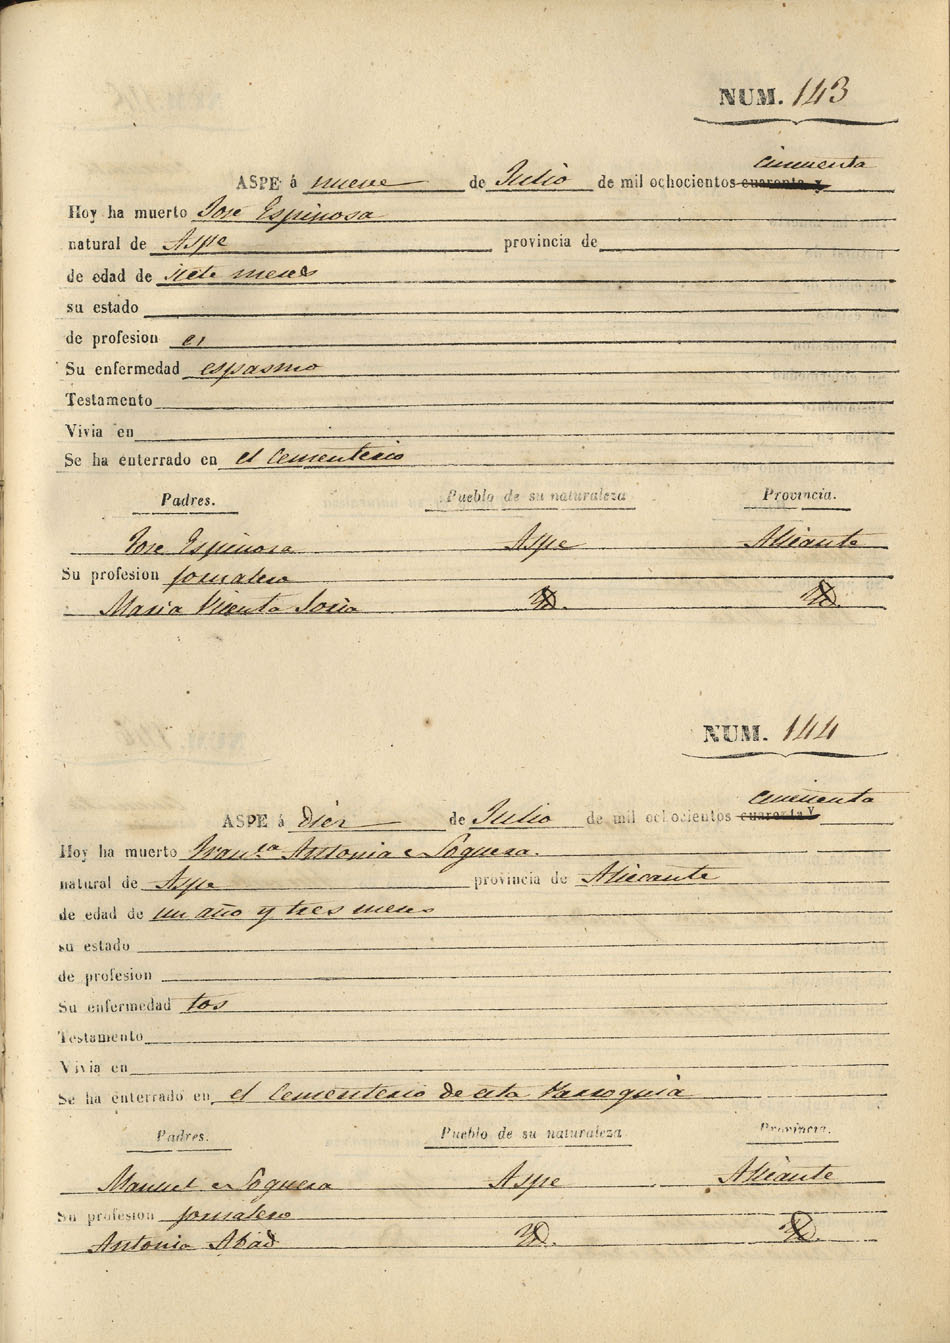 NUM. 143
cincuenta
ASPE á nueve de Julio de mil ochocientos cuarenta y
Hoy ha muerto Jose Espinosa
natural de Aspe provincia de
de edad de siete meses
su estado
de profesion
Su enfermedad espasmo
Testamento
Vivia en
Se ha enterrado en el Cementerio
Padres. Pueblo de su naturaleza Provincia.
Jose Espinosa Aspe Alicante
Su profesion jornalero
Maria Vicenta Soria Yd. Yd.
NUM. 144
cincuenta
ASPE á Diez de Julio de mil ochocientos cuarenta y
Hoy ha muerto Fran.ca Antonia Noguera.
natural de Aspe provincia de Alicante
de edad de un año y tres meses
su estado
de profesion
Su enfermedad tos
Testamento
Vivia en
Se ha enterrado en el Cementerio de esta Parroquia
Padres. Pueblo de su naturaleza Provincia.
Manuel Noguera Aspe Alicante
Su profesion jornalero
Antonia Abad Yd. Yd.